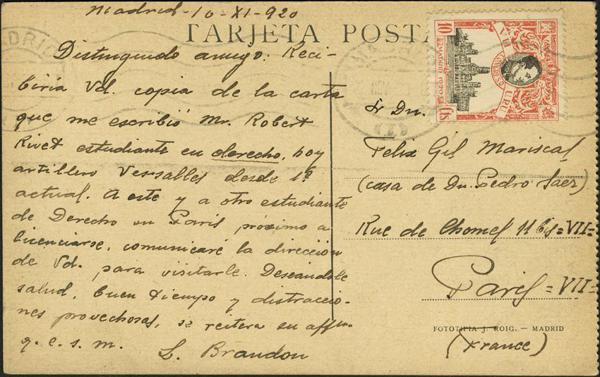 Madrid - 10 - XI - 920
TARJETA POSTAL
Distinguido amigo. Reci-
biría Vd. copia de la carta
que me escribió Mr. Robert
Rivet estudiante en derecho, hoy
artillero Versalles desde 1º
actual. A este y a otro estudiante
de Derecho en Paris proximo a
licenciarse, comunicaré la dirección
de Vd. para visitarle. Deseandole
salud, buen tiempo y distraccio-
nes provechosas, se reitera su affmo
q. e. s. m.
L. Brandon
10 cts
Sr. Dn.
Felix Gil Mariscal
(casa de Dn. Pedro Saez)
Rue de Chomel 11 bis = VII =
Paris = VII =
FOTOTIPIA J. ROIG. — MADRID
(France)